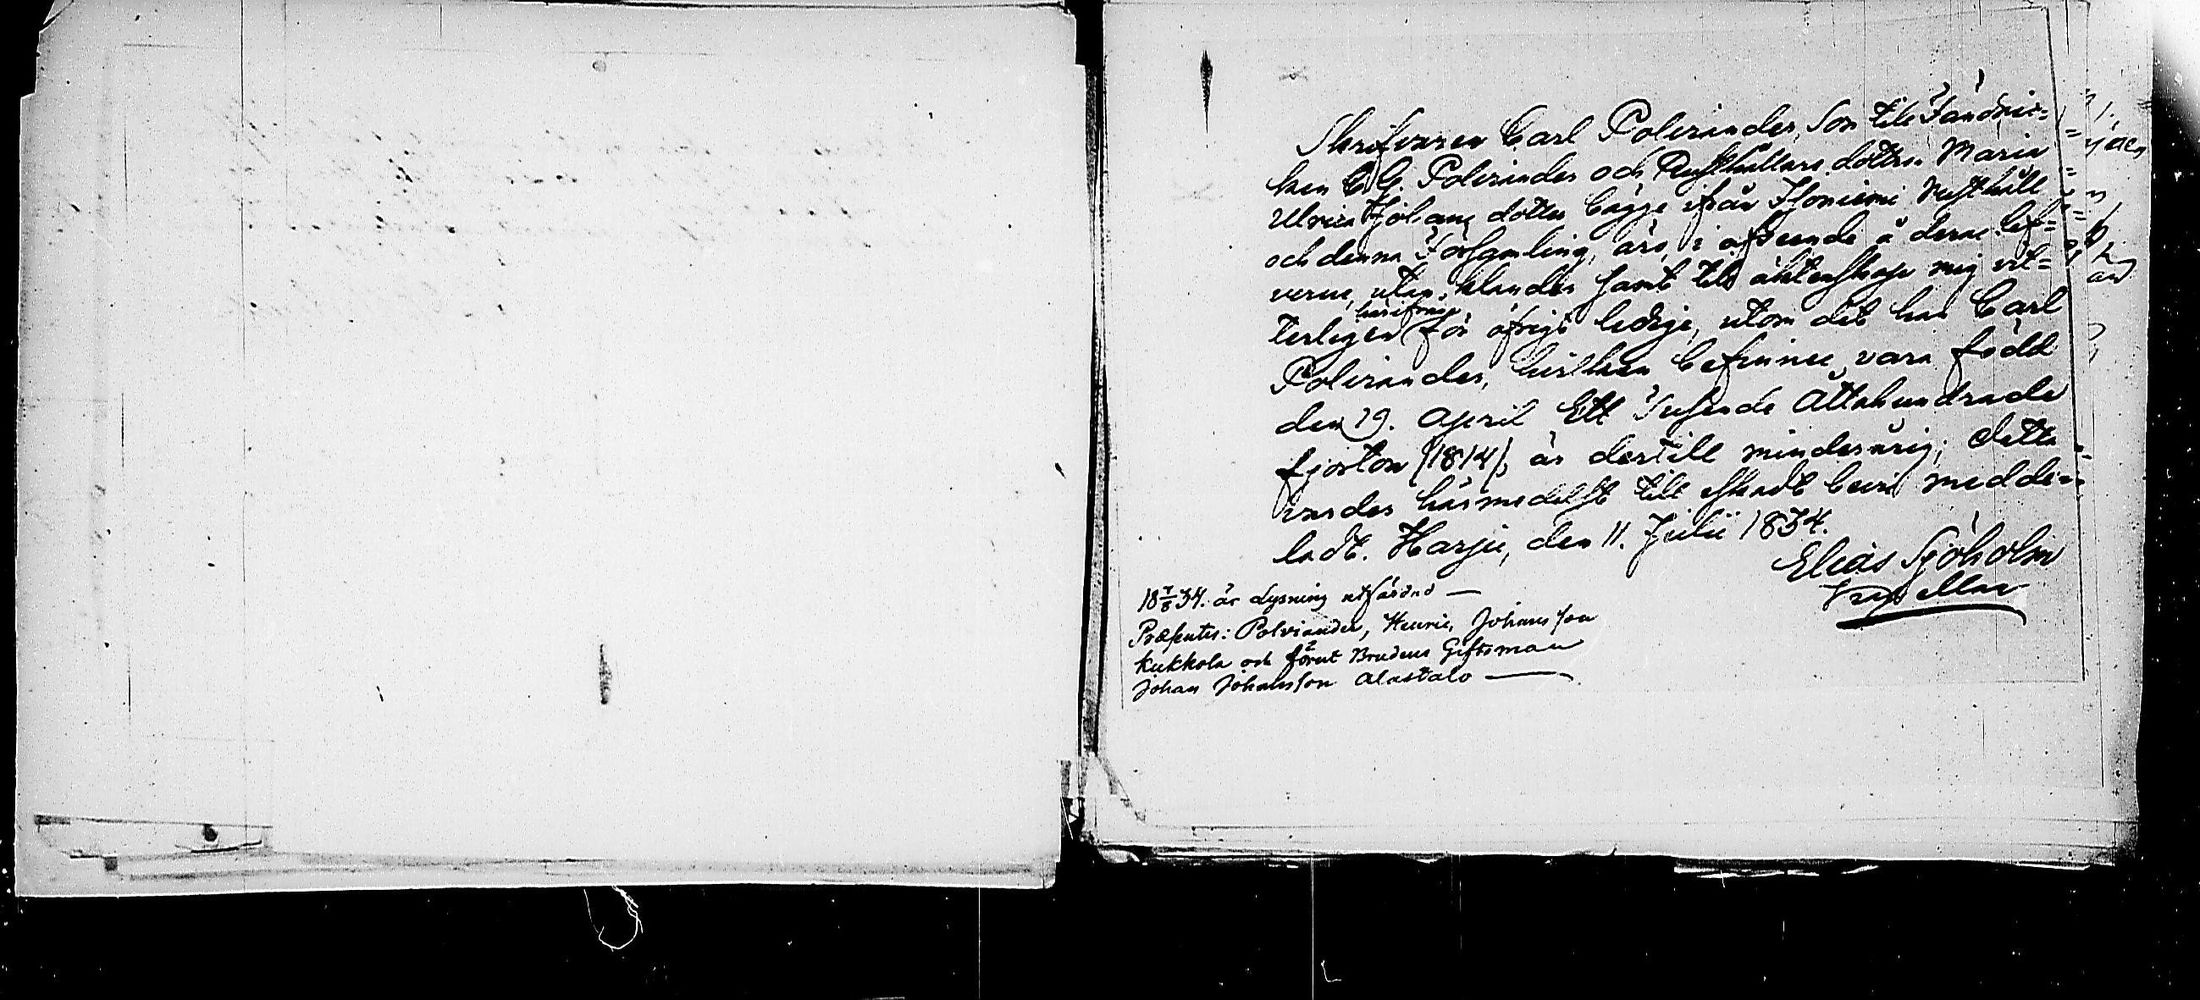 Skrifvaren Carl Polviander, Son till Fändric=
ken C. G. Polviander och Rusthållare dottren Maria
Ulrica Johans dotter bägge ifrån Isoniemi Rusthåll
och denna Församling, äro, i afseende å deras lef=
verne, utan klander samt till äktenskap mig vit=
terligen härifrån för öfrigt ledige, utom det har Carl
Polviander, hvilken befinnes vara född
den 19. April Ett Tusende Åttahundrade
fjorton (1814), är dertill minderårig; detta
varder härmedelst till äskadt bevis medde=
ladt. Harju, den 11. Julii 1834.
Elias Sjöholm
Capellan
18 7/8 34. är lysning utfärdad —
Præsentes: Polviander, Henric Johansson
Kukkola och förut Brudens Giftoman
Johan Johansson Alastalo —